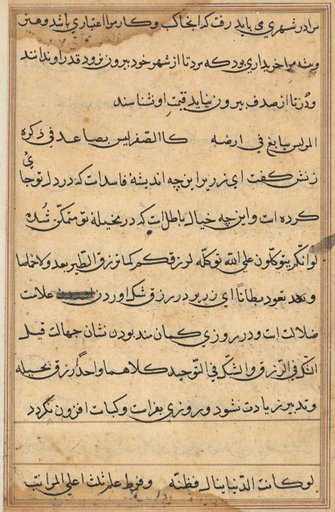 مرا در شهری می باید رفت که انجا کسب و کار مرا اعتباری باشد و هنر
و پیشه مرا خریداری بود که مرد تا از شهر خود بیرون نرود قدر او ندانند
و در تا از صدف بیرون نیاید قیمت او نشناسند
المرء ليس ببالغ في ارضه كالصقر ليس بصائد في وكره
زنش کفت ای زریر این چه اندیشهٔ فاسد است که در دل تو جای
کرده است و این چه خیال باطل است که در مخیلهٔ تو متمکن شده
لو انكم تتوكلون على الله توكله لرزقكم كما ترزق الطير تغدو خماصا
و تعود بطانا ای زریر در رزق شک اوردن علامت
ضلالت است و در روزی کمان مند بودن نشان جهالت قیل
الشك في الرزق والشك في التوحيد كلاهما واحد رزق بحیله
و تدبیر زیادت نشود و روزی بفراست و کیاست افزون نکردد
لو كانت الدنيا تنال بفطنة وفرط علم نلت اعلى المراتب